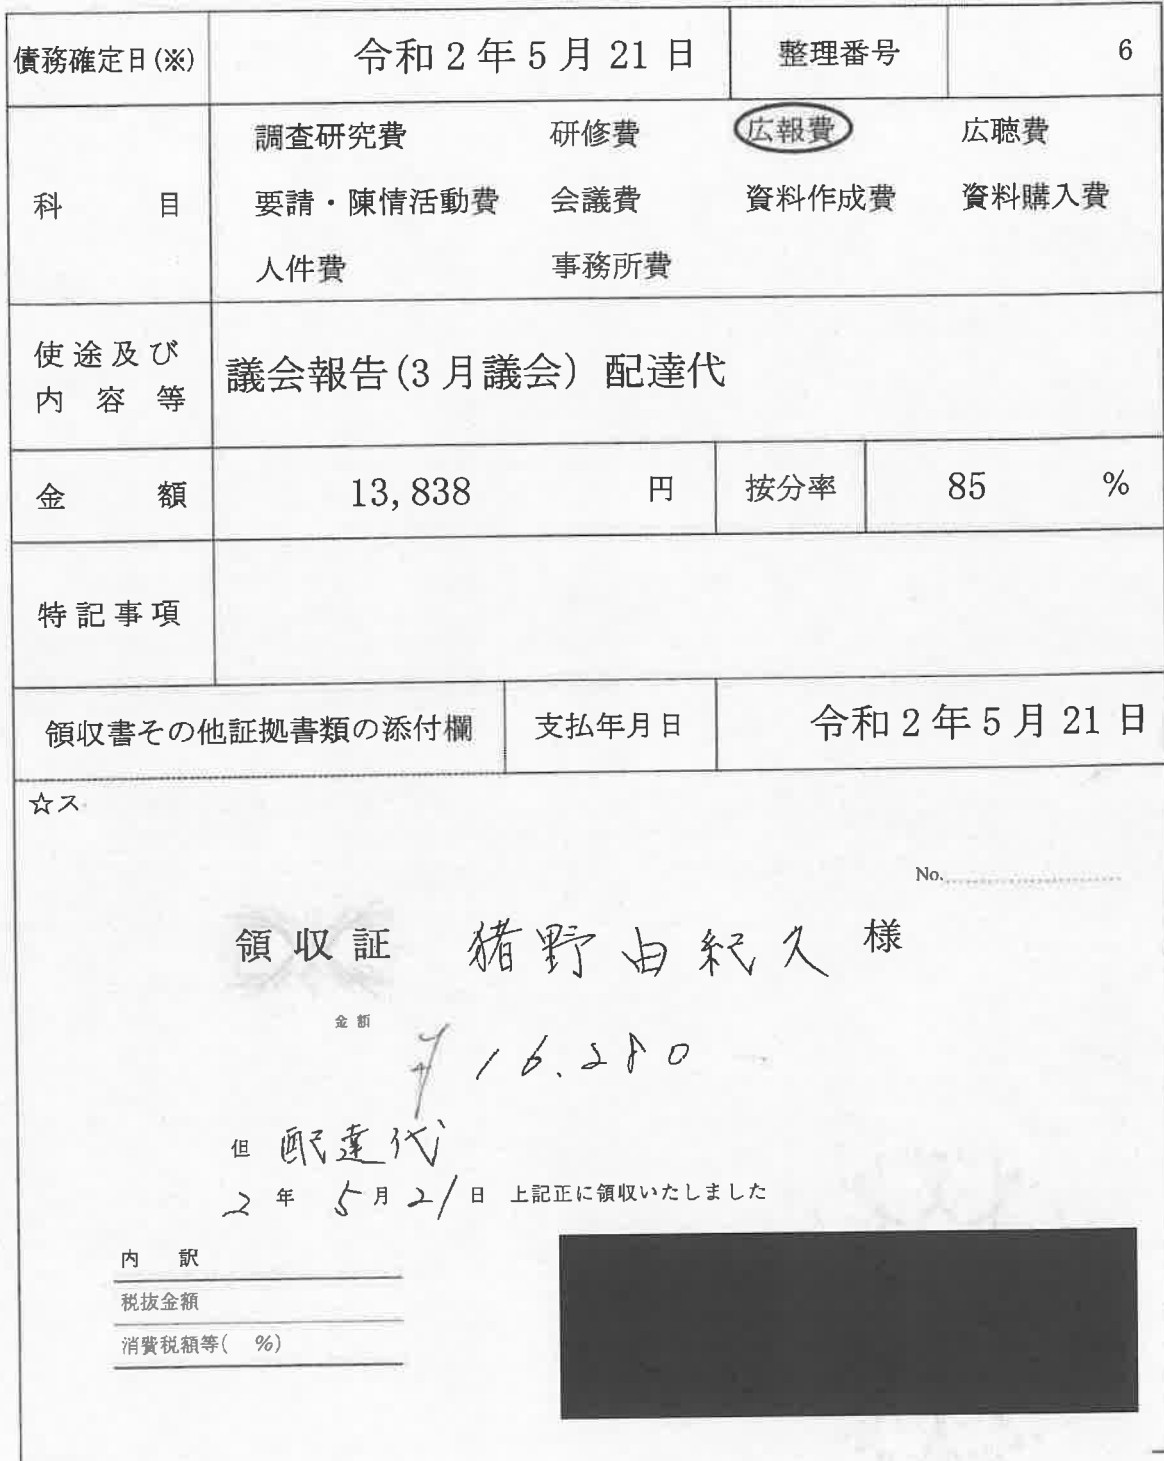 債務確定日(※) 令和2年5月21日 整理番号 6
科目 調査研究費 研修費 広報費 広聴費
要請・陳情活動費 会議費 資料作成費 資料購入費
人件費 事務所費
使途及び内容等 議会報告(3月議会) 配達代
金額 13,838 円 按分率 85 %
特記事項
領収書その他証拠書類の添付欄 支払年月日 令和2年5月21日
☆ス
No.
領収証 猪野由紀久 様
金額
¥16.280
但 配達代
2年5月21日 上記正に領収いたしました
内訳
税抜金額
消費税額等( %)